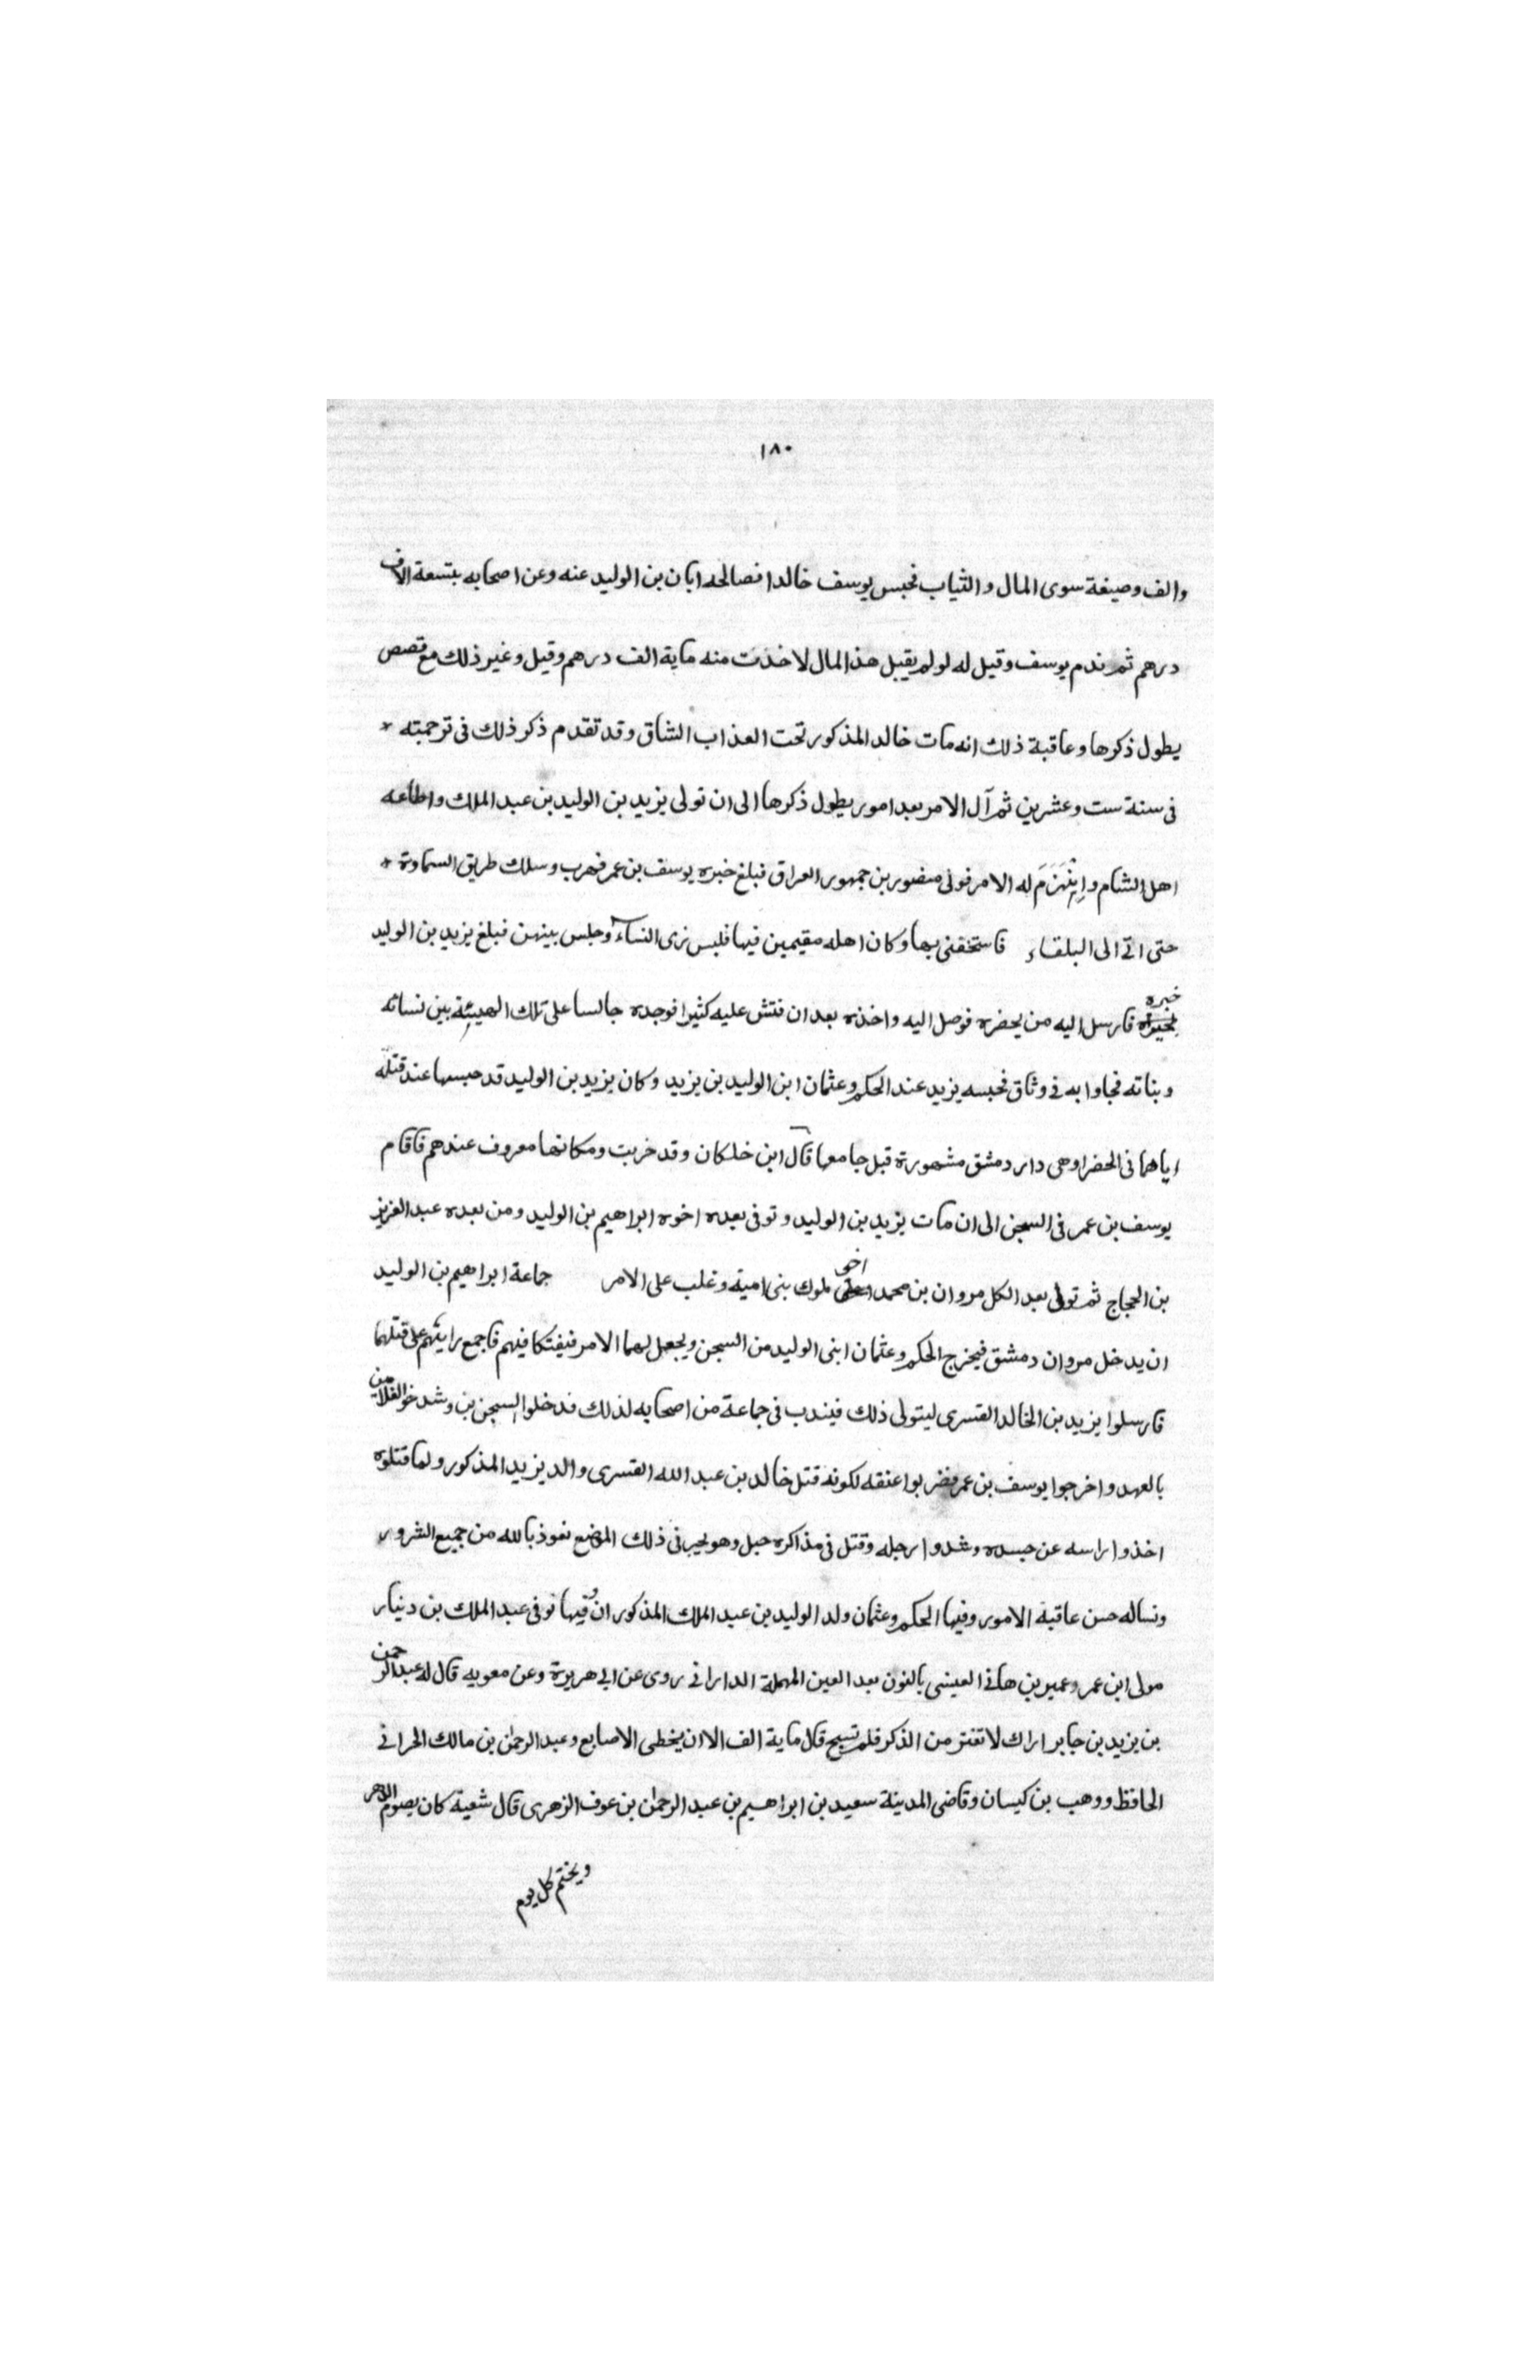 ١٨٠
والف وصيفة سوى المال والثياب فحبس يوسف خالدا فصالحه ابان بن الوليد عنه وعن اصحابه بتسعة الاف
درهم ثم ندم يوسف وقيل له لو لم يقبل هذا المال لاخذت منه ماية الف درهم وقيل وغير ذلك مع قصص
يطول ذكرها وعاقبة ذلك انه مات خالد المذكور تحت العذاب الشاق وقد تقدم ذكر ذلك فى ترجمته *
فى سنة ست وعشرين ثم آل الامر بعد امور يطول ذكرها الى ان تولى يزيد بن الوليد بن عبد الملك واطاعه
اهل الشام وانهزم له الامر فولى منصور بن جمهور العراق فبلغ خبره يوسف بن عمر فهرب وسلك طريق السماوة *
حتى اتى الى البلقاء فاستخفى بها وكان اهله مقيمين فيها فلبس زى النساء وجلس بينهن فبلغ يزيد بن الوليد
خبره فارسل اليه من يحضره فوصل اليه واخذه بعد ان فتش عليه كثيرا فوجده جالسا على تلك الهيئة بين نسائه
وبناته فجاوا به فى وثاق فحبسه يزيد عند الحكم وعثمان ابن الوليد بن يزيد وكان يزيد بن الوليد قد حبسها عند قتله
اياهما فى الخضرا وهى دار دمشق مشهورة قبل جامعها قال ابن خلكان وقد خربت ومكانها معروف عندهم فاقام
يوسف بن عمر فى السجن الى ان مات يزيد بن الوليد وتوفى بعده اخوه ابراهيم بن الوليد ومن بعده عبد العزيز
بن الحجاج ثم تولى بعد الكل مروان بن محمد اخو ملوك بنى امية وغلب على الامر جماعة ابراهيم بن الوليد
ان يدخل مروان دمشق فيخرج الحكم وعثمان ابنى الوليد من السجن ويجعل لهما الامر فيفتكا فيهم فاجمع رايهم على قتلهما
فارسلوا يزيد بن الخالد القسرى ليتولى ذلك فيندب فى جماعة من اصحابه لذلك فدخلوا السجن وشدخوا الغلامين
بالعهد واخرجوا يوسف بن عمر فضربوا عنقه لكونه قتل خالد بن عبد الله القسرى والد يزيد المذكور ولما قتلوه
اخذوا راسه عن جسده وشدوا رجله وقتل فى مذاكره حبل وهو يجر فى ذلك الموضع نعوذ بالله من جميع الشرور
ونساله حسن عاقبة الامور وفيها الحكم وعثمان ولد الوليد بن عبد الملك المذكور ان وفيها توفى عبد الملك بن دنيار
مولى ابن عمر وعمير بن هانى العينسى بالنون بعد العين المهملة الدارانى روى عن ابى هريرة وعن معويه قال له عبد الرحمن
بن يزيد بن جابر اراك لا تفتر من الذكر فلم تسبح قال ماية الف الا ان يخطى الاصابع وعبد الرحمن بن مالك الحرانى
الحافظ ووهب بن كيسان وقاضى المدينة سعيد بن ابراهيم بن عبد الرحمن بن عوف الزهرى قال شعبة كان يصوم الدهر
ويختم كل يوم